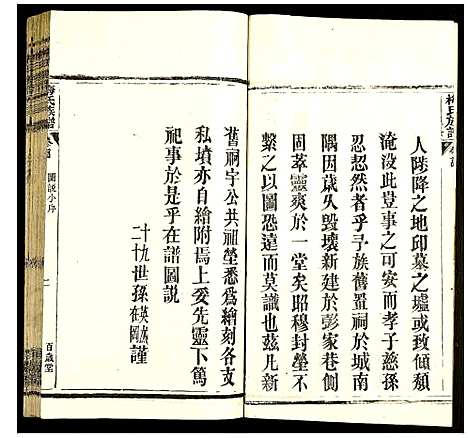 梅氏族譜
人陟降之地邱墓之墟或致傾頹
淹沒此豈事之可安而孝子慈孫
忍恝然者乎予族舊置祠於城南
隅因歲久毀壞新建於彭家巷側
固萃靈爽於一堂矣昭穆封塋不
繫之以圖恐遠而莫識也茲凡新
舊祠宇公共祖塋悉為繪刻各支
私墳亦自繪附焉上妥先靈下篤
祀事於是乎在譜圖說
二十九世孫
謹
梅氏族譜
圖說小序
一
百歲堂